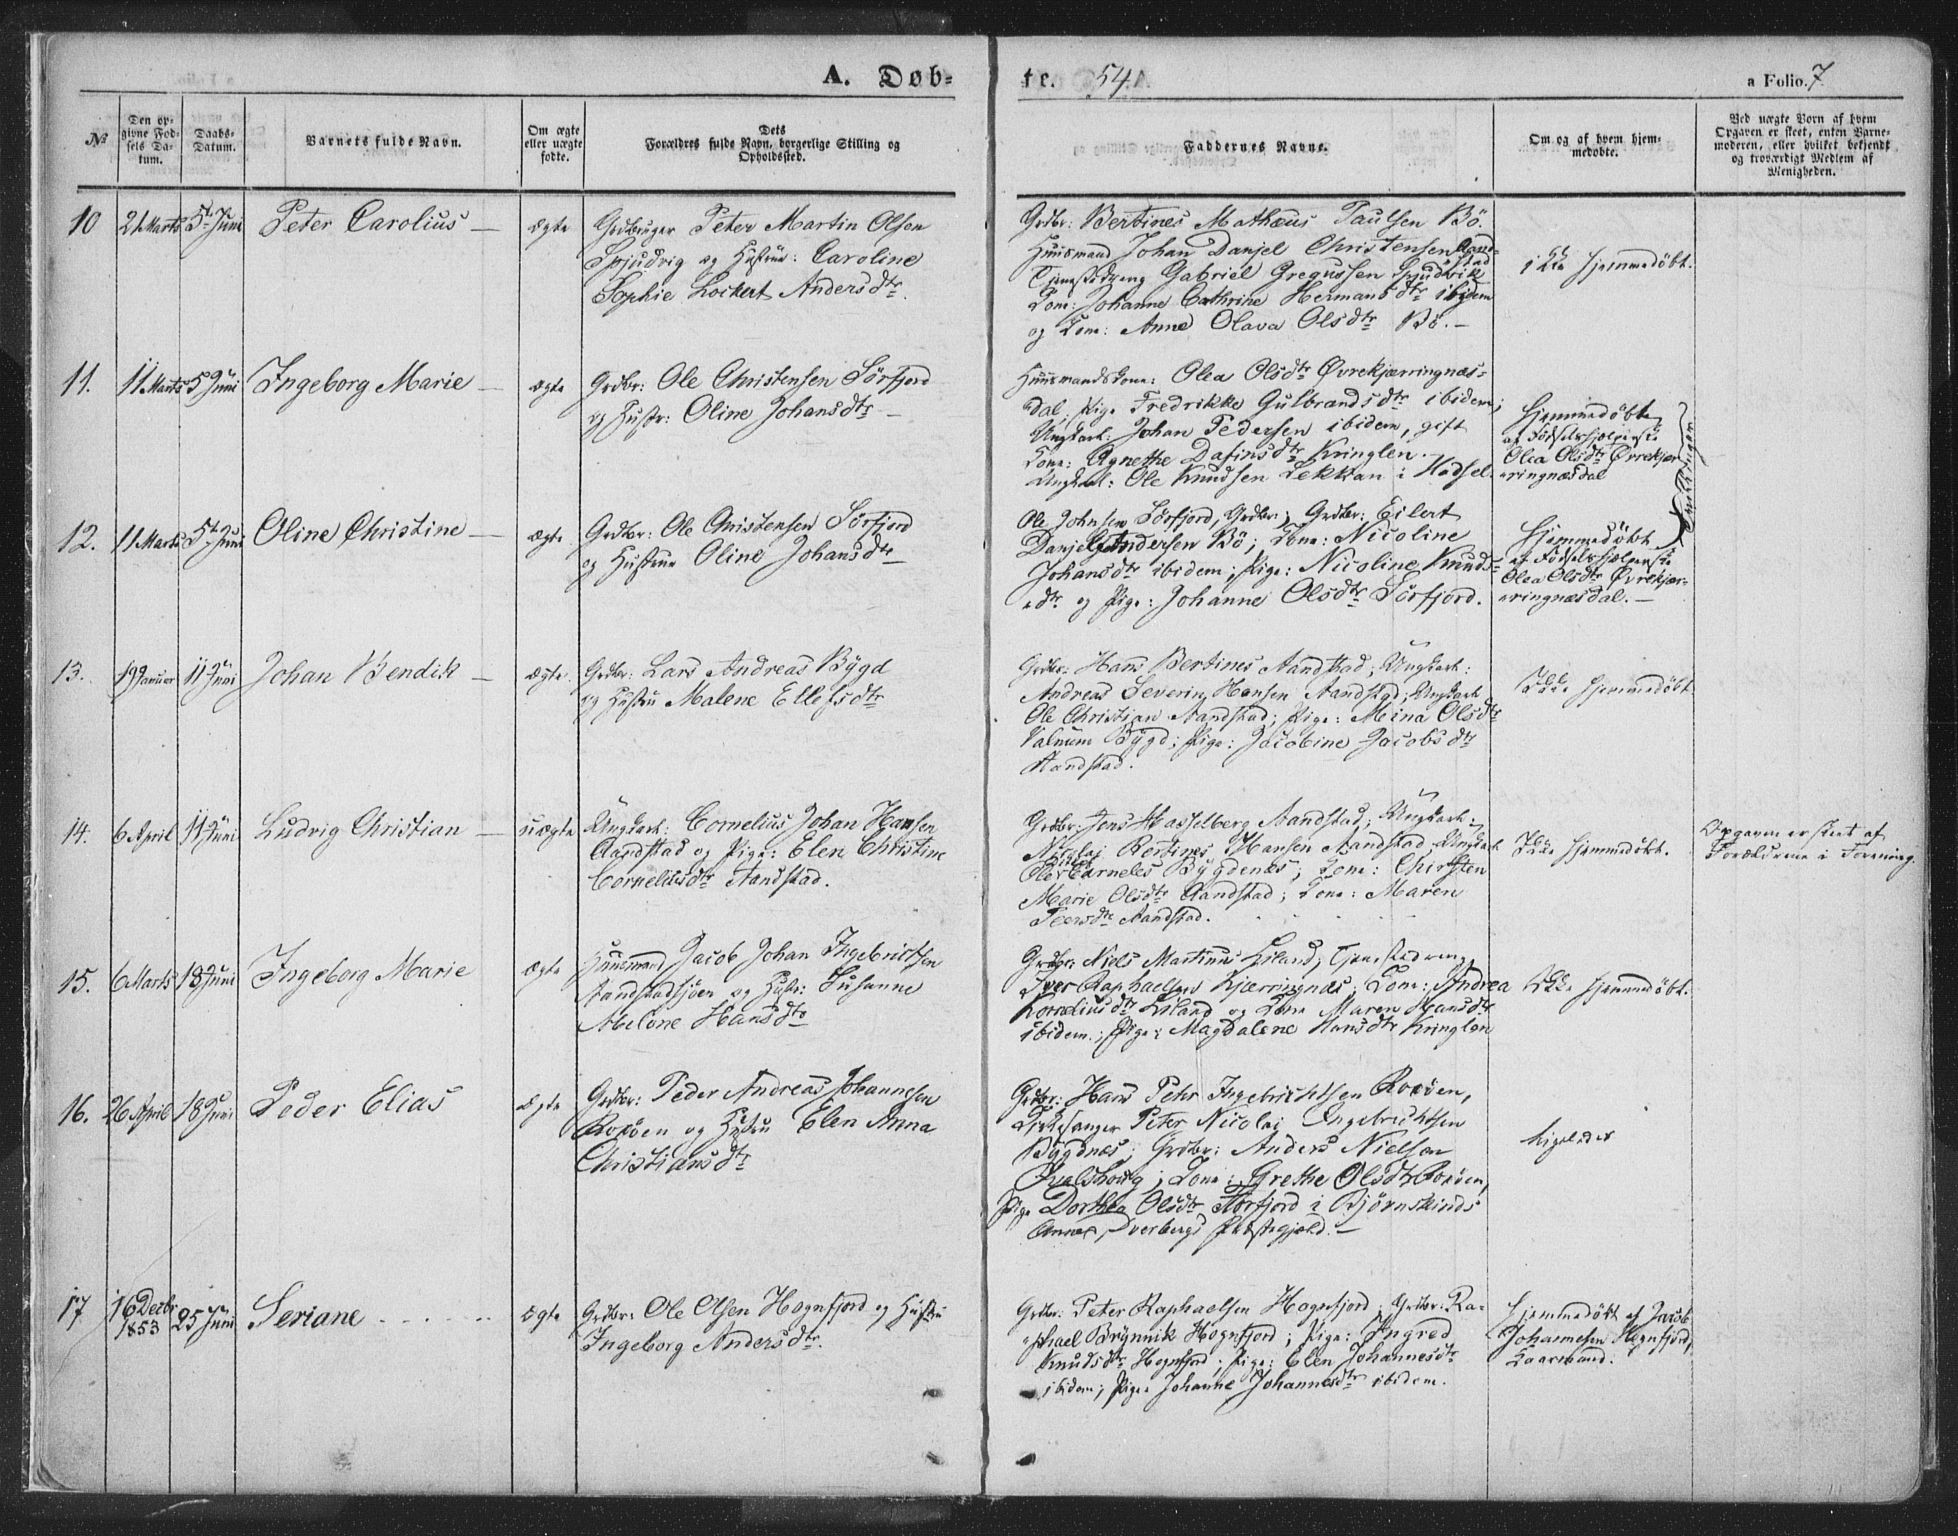 A. Døb-
te. 54.
a Folio. 7
№
Den op-
givne Fød-
sels Da-
tum.
Daabs-
Datum.
Barnets fulde Navn.
Om ægte
eller uægte
fødte.
Dets
Forældres fulde Navn, borgerlige Stilling og
Opholdssted.
Faddernes Navne.
Om og af hvem hjem-
medøbte.
Ved uægte Børn af hvem
Opgaven er skeet, enten Barne-
moderen, eller hvilket bekjendt
og troværdigt Medlem af
Menigheden.
10 21 Marts 5te Juni Peter Carolius — ægte
Grdbruger Peter Martin Olsen
Spjudvig og Hustrue: Caroline
Sophie Lockert Andersdtr.
Grdbr: Bertines Mathæus Paulsen Bö.
Huusmand Johan Danjel Christensen Aand-
stad
Tjenestedreng Gabriel Gregussen Spjudvik
Kone: Johanne Cathrine Hermansdtr ibidem
og Kone: Anne Olava Olsdtr Bö. —
ikke hjemmedøbt.
11. 11 Marts 5 Juni Ingeborg Marie — ægte
Grdbr: Ole Christensen Sörfjord
og Hustr: Oline Johansdtr —
Huusmandskone: Olea Olsdtr Øvrekjærringnæs-
dal; Pige Fredrikke Gulbrandsdtr ibidem;
Ungkarl: Johan Pedersen ibidem, gift
Kone: Agnethe Dafinsdtr Kringlen.
Ungkarl: Ole Knudsen Lekkan i Hadsel.
Hjemmedøbt
af Fødselshjælperske
Olea Olsdtr Øvrekjær-
ringnæsdal
Tvillinger
12. 11 Marts 5te Juni Oline Christine — ægte
Grdbr: Ole Christensen Sörfjord
og Hustrue Oline Johansdtr
Ole Johnsen Sörfjord, Grdbr; Grdbr: Eilert
Danjel Andersen Bö; Kone: Nicoline
Johansdtr ibidem; Pige: Nicoline Knuds-
dtr og Pige: Johanne Olsdtr Sörfjord.
Hjemmedøbt
af Fødselshjælperske
Olea Olsdtr Øvrekjær-
ringnæsdal. —
13. 19 Januar 11 Juni Johan Bendik — ægte
Grdbr: Lars Andreas Bÿgd
og Hustru Malene Ellefsdtr
Grdbr: Hans Bertines Aandstad; Ungkarl:
Andreas Severin Hansen Aandstad; Ungkarl
Ole Christian Aandstad; Pige: Mina Olsdtr
Valnum Bÿgd; Pige: Jacobine Jacobsdtr
Aandstad.
Ikke hjemmedøbt
14. 6 April 11 Juni Ludvig Christian — uægte
Ungkarl: Cornelius Johan Hansen
Aandstad og Pige: Elen Christine
Corneliusdtr Aandstad.
Grdbr: Jens Hasselberg Aandstad; Ungkarl:
Nicolai Bertines Hansen Aandstad Ungkarl
Corneles Bÿgdenes; Kone: Chirsten
Marie Olsdtr Aandstad; Kone: Maren
Peersdtr Aandstad.
Ikke hjemmedøbt.
Opgaven er skeet af
Forældrene i Forening.
15. 6 Marts 18 Juni Ingeborg Marie ægte
Huusmand Jacob Johan Ingebrictsen
Aandstadsjöen og Hustr: Susanne
Abelone Hansdtr
Grdbr: Niels Martinus Eiland; Tjenestedreng
Iver Raphaelsen Kjærringnæs; Kone: Andrea
Korneliusdtr Eiland og Kone Maren Hansdtr
ibidem; Pige: Magdalene Hansdtr Kringlen
Ikke hjemmedøbt.
16. 26 April 18 Juni Peder Elias ægte
Grdbr: Peder Andreas Johannesen
Roxöen og Hustru Elen Anna
Christiansdtr
Grdbr: Hans Pehr Ingebrichtsen Roxöen,
Kirkesanger Peter Nicolai Ingebrichtsen
Bÿgdnæs; Grdbr: Anders Nielsen
Kone: Grethe Olsdtr Roxöen,
Pige Dorthea Olsdtr Aarfjord i Björnskinds
Annex, Dverbergs Præstegjæld. —
ligeledes
17 16 Decbr
1853 25 Juni Seriane . . . . . . ægte
Grdbr: Ole Olsen Hognfjord og Hustru
Ingeborg Andersdtr.
Grdbr: Peter Raphaelsen Hognfjord; Grdbr: Ra-
phael Brÿnnik Hognfjord; Pige: Ingred
Knudsdtr Hognfjord; Pige: Elen Johannesdtr
ibidem; Pige: Johanne Johannesdtr ibidem.
Hjemmedøbt af Jacob
Johannesen Hognfjord,
Kaarmand.